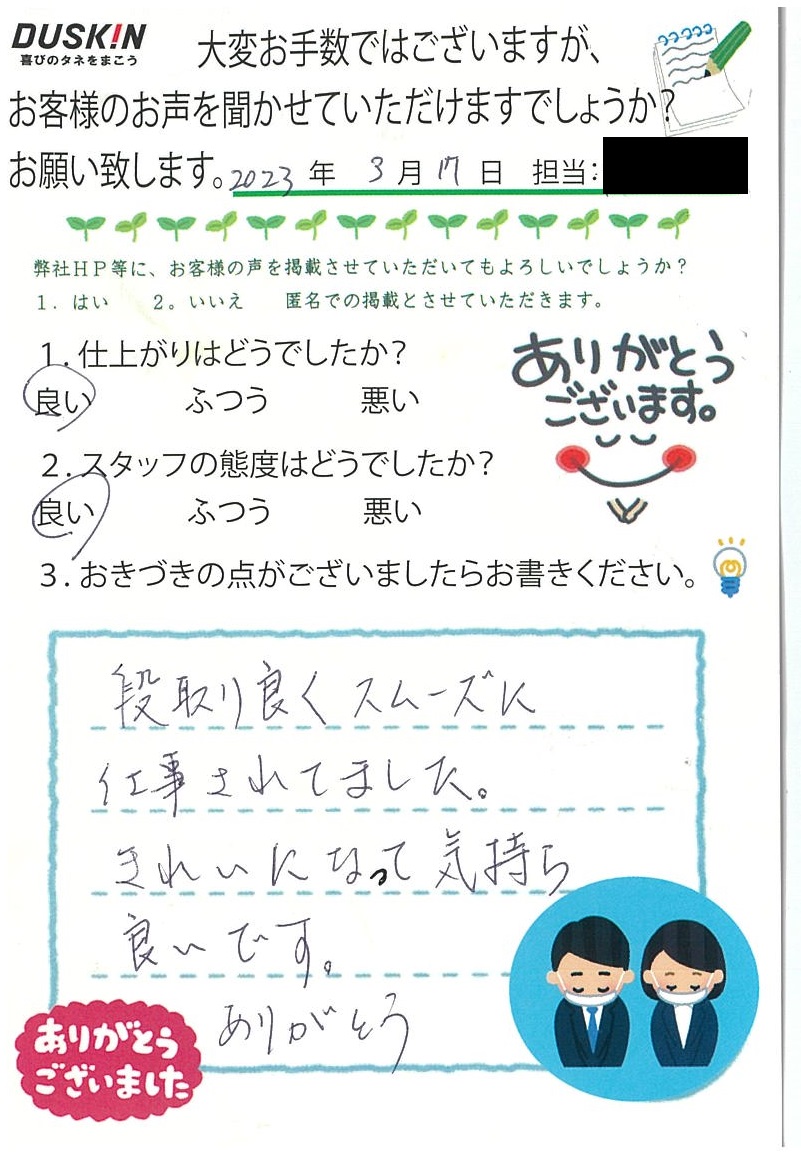 DUSK!N
喜びのタネをまこう
大変お手数ではございますが、
お客様のお声を聞かせていただけますでしょうか?
お願い致します。2023 年 3 月 17 日 担当:
弊社HP等に、お客様の声を掲載させていただいてもよろしいでしょうか?
1. はい 2。いいえ 匿名での掲載とさせていただきます。
1. 仕上がりはどうでしたか?
良い ふつう 悪い
ありがとう
ございます。
2. スタッフの態度はどうでしたか?
良い ふつう 悪い
3. おきづきの点がございましたらお書きください。
段取り良くスムーズに
仕事されてました。
きれいになって気持ち
良いです。
ありがとう
ありがとう
ございました